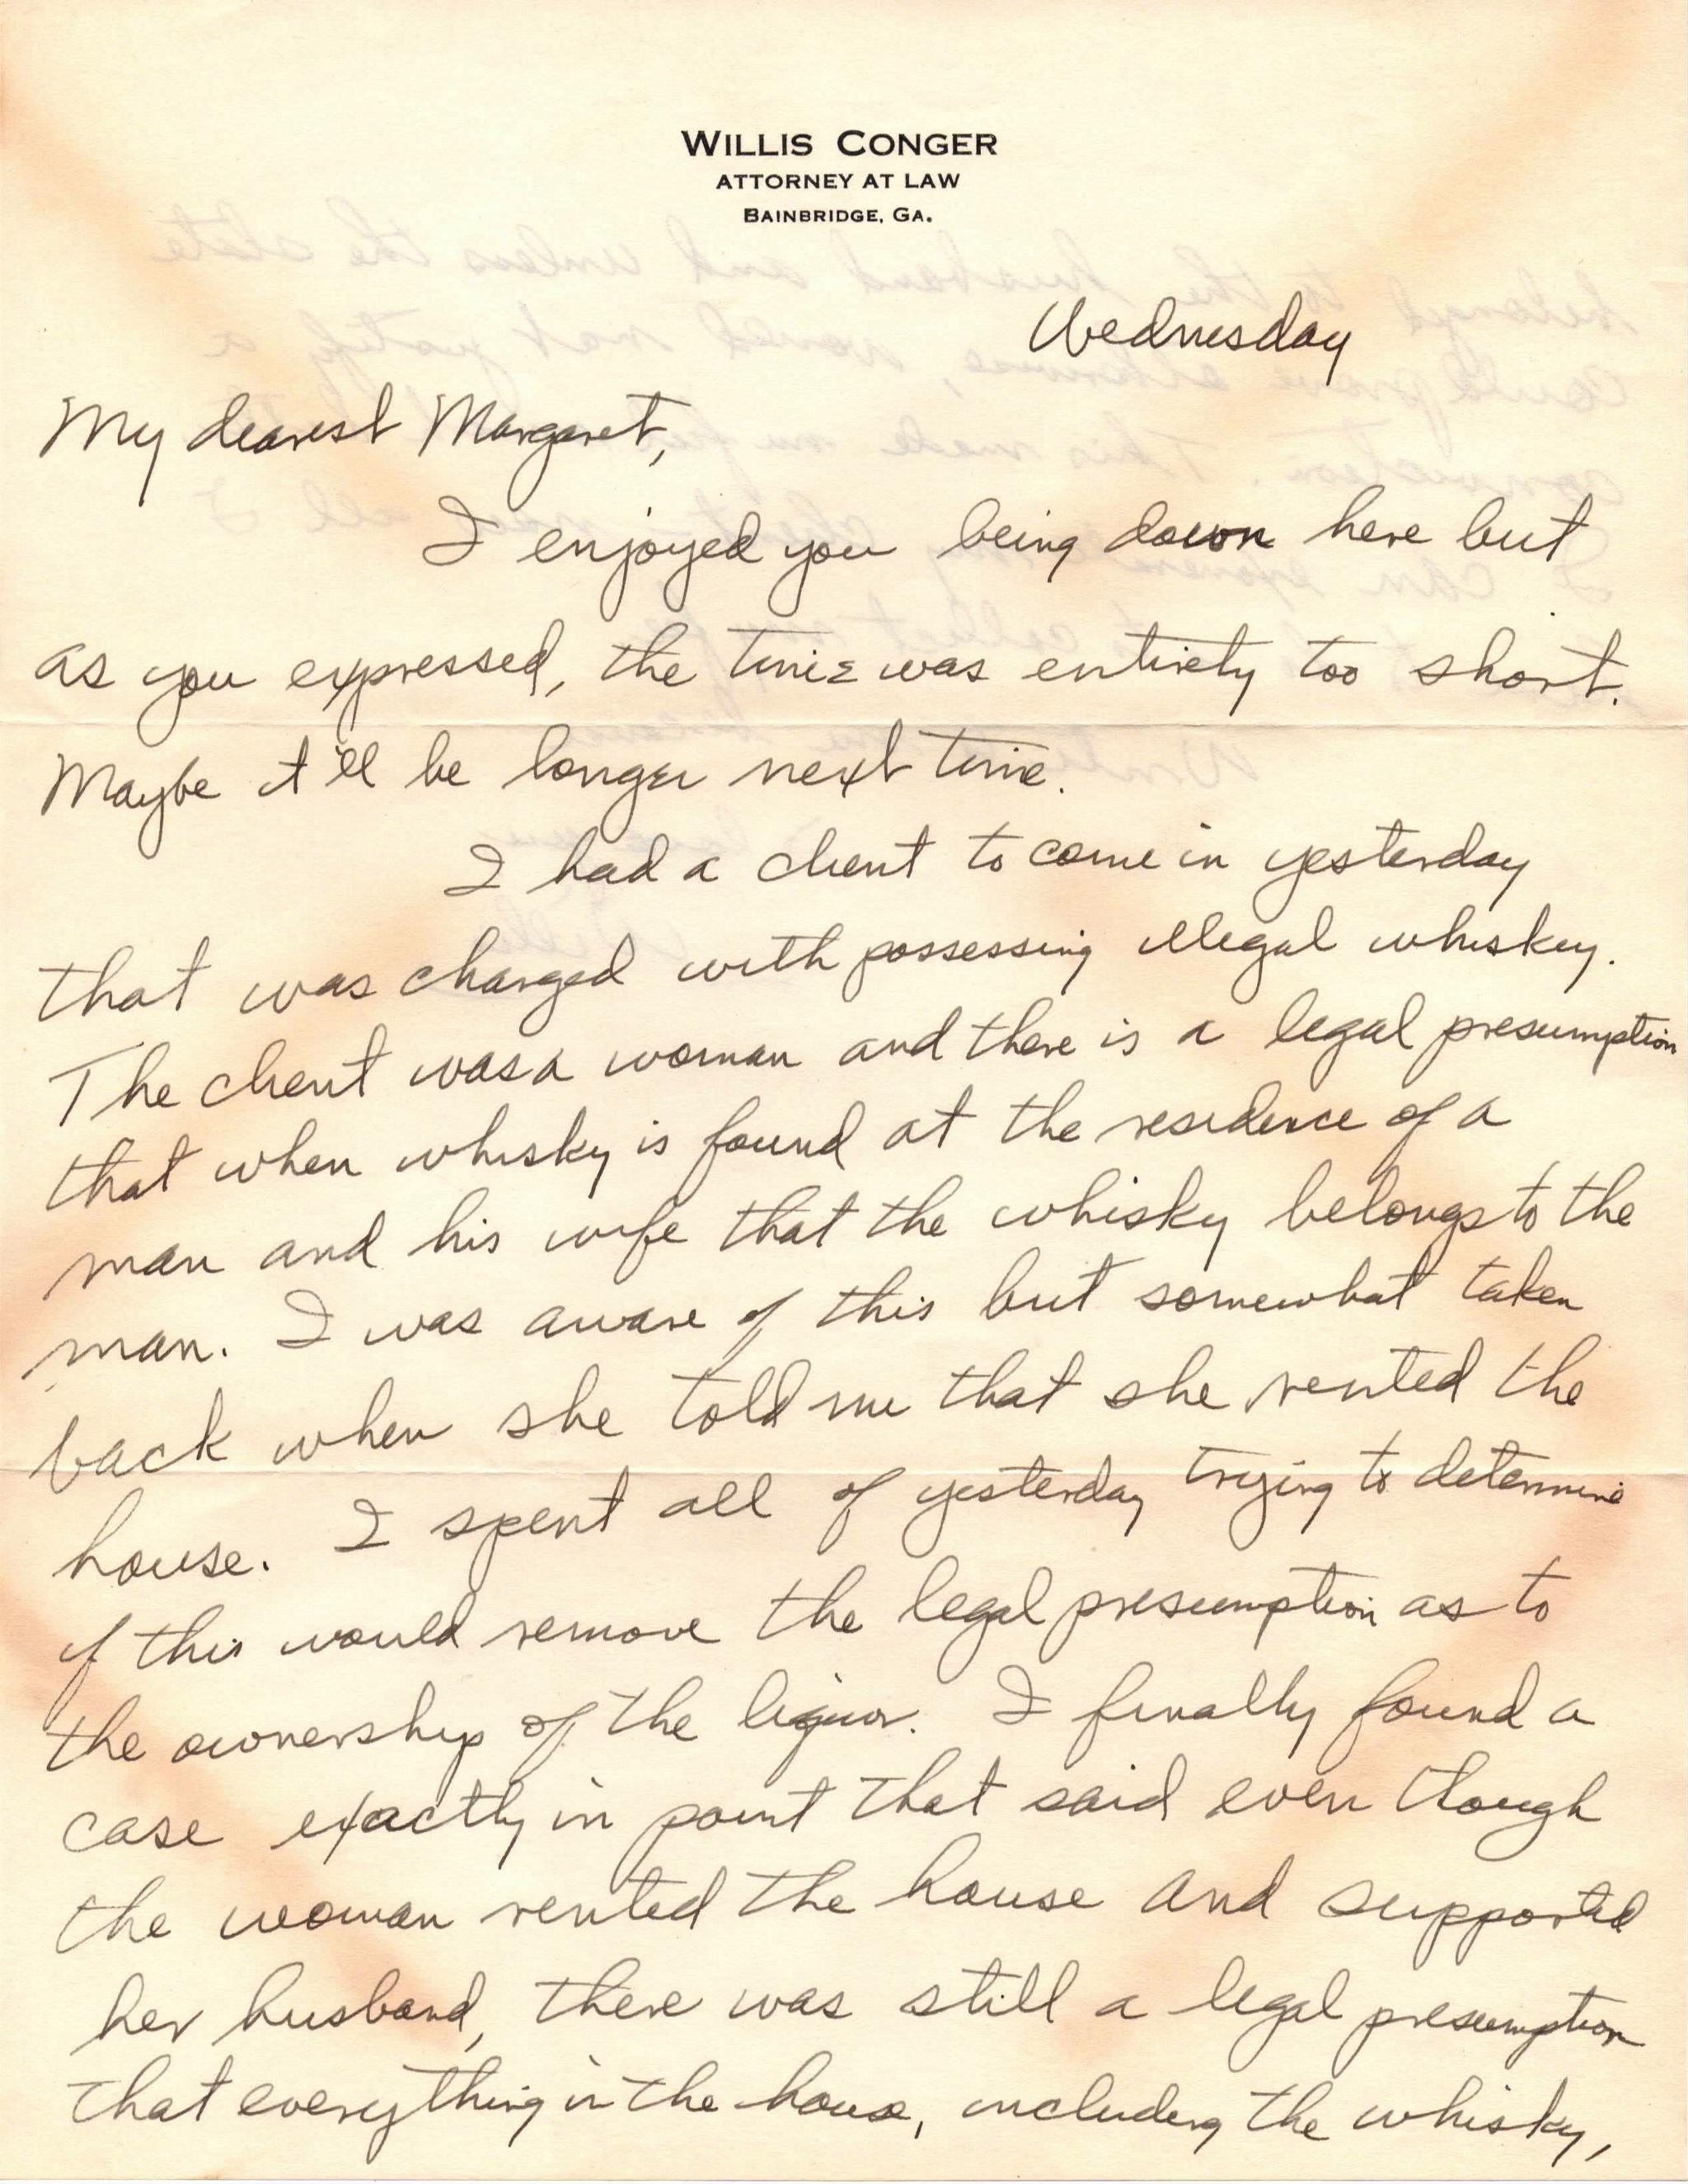 WILLIS CONGER
ATTORNEY AT LAW
BAINBRIDGE, GA.
Wednesday
My dearest Margaret,
I enjoyed you being down here but
as you expressed, the time was entirely too short.
Maybe it'll be longer next time.
I had a client to come in yesterday
that was charged with possessing illegal whiskey.
The client was a woman and there is a legal presumption
that when whisky is found at the residence of a
man and his wife that the whisky belongs to the
man. I was aware of this but somewhat taken
back when she told me that she rented the
house. I spent all of yesterday trying to determine
if this would remove the legal presumption as to
the ownership of the liquor. I finally found a
case exactly in point that said even though
the woman rented the house and supported
her husband, there was still a legal presumption
that everything in the house, including the whisky,